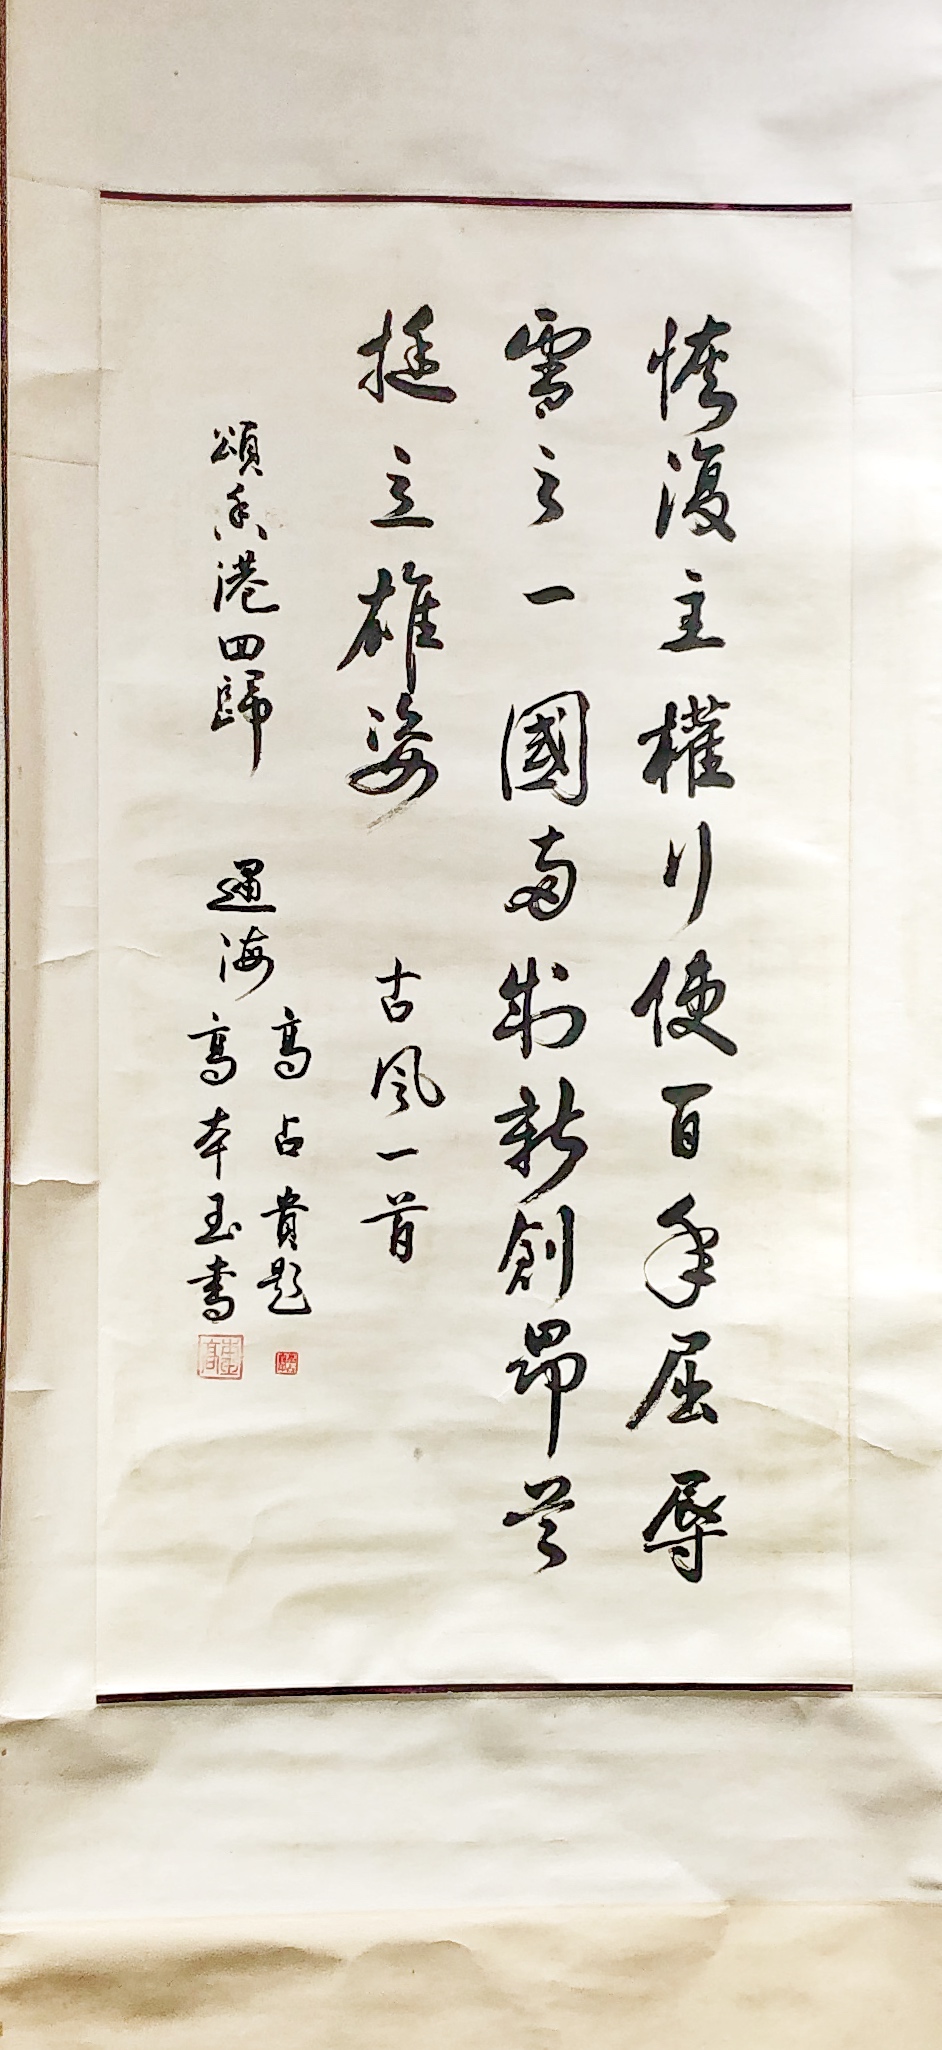 恢復主權行使百年屈辱
雪之一國兩制新創昂首
挺立雄姿 古風一首
頌香港回歸 通海
高占貴題
高本玉書